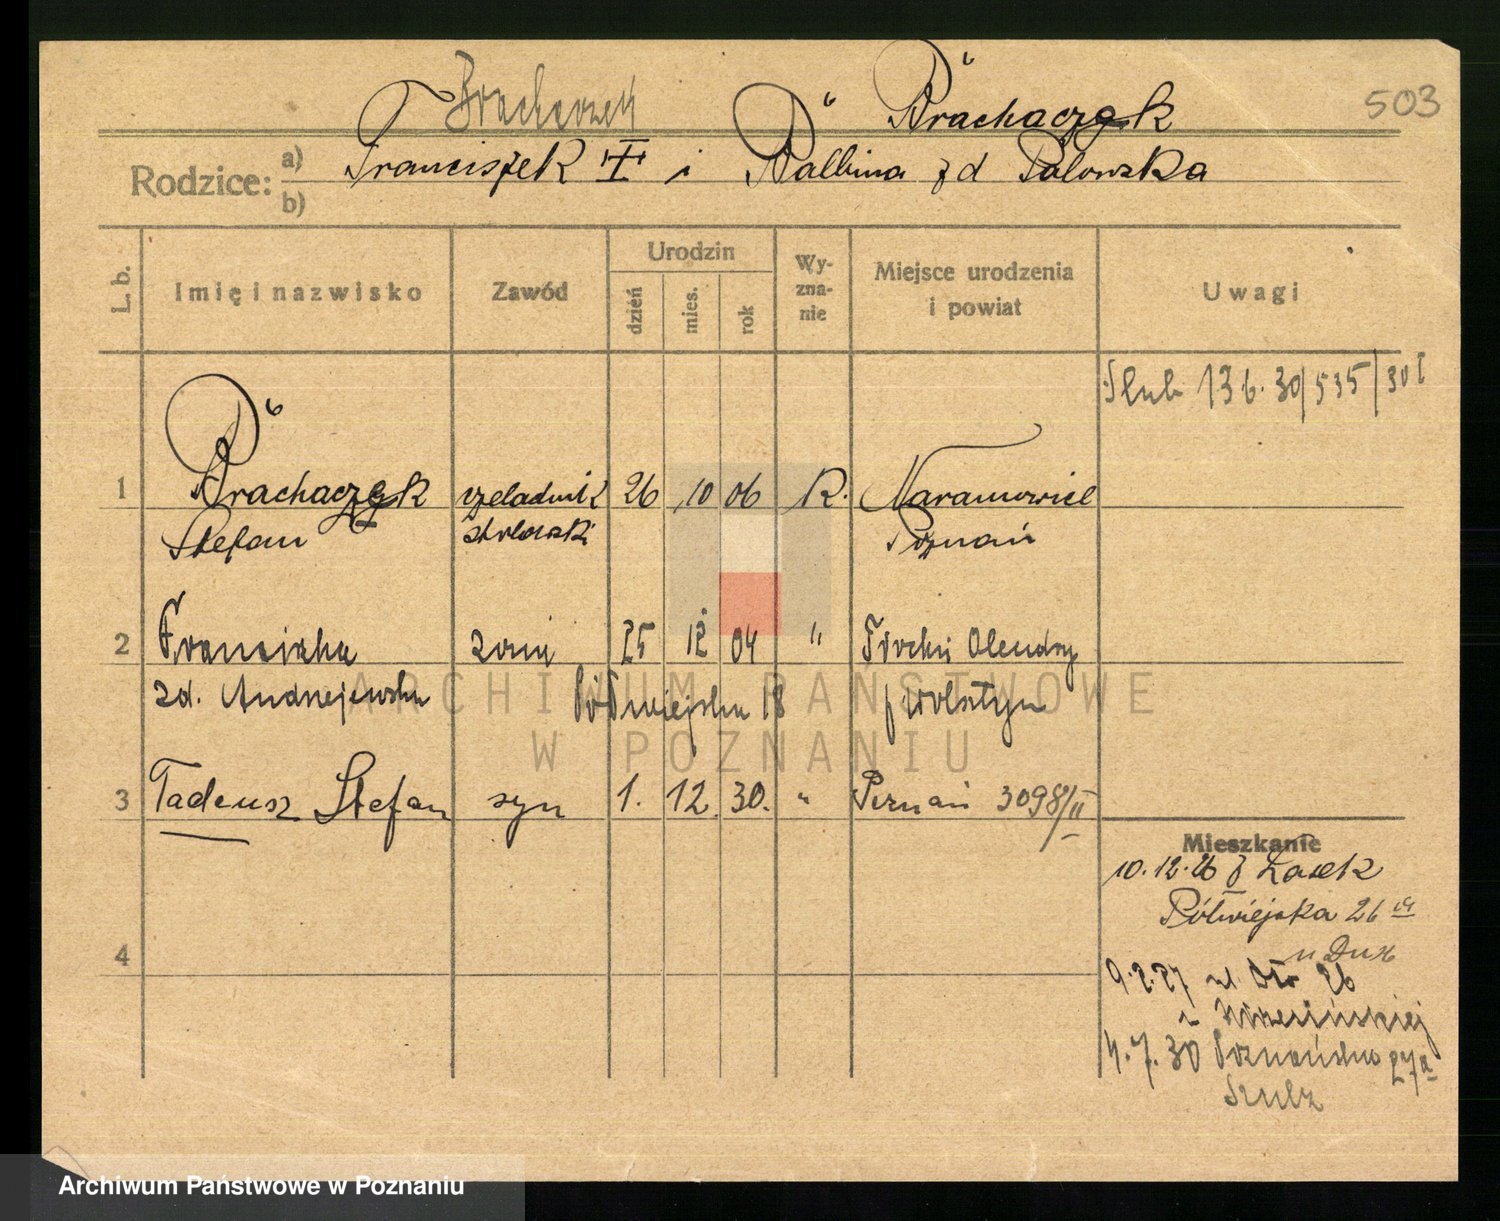 Brachaczek
Brachaczek
503
Rodzice:
a) Franciszek i Balbina z d Palowska
b)
L. b.
Imię i nazwisko
Zawód
Urodzin
dzień
mies.
rok
Wy-
zna-
nie
Miejsce urodzenia
i powiat
Uwagi
Ślub 13 6. 30/535/30 I
1 Brachaczek czeladnik 26 10 06 R. Naramowice
Stefan stolarski Poznań
2 Franciszka żona 25 12 04 " Trocki Olendry
zd. Andrzejewska Półwiejska 18 p Wolsztyn
3 Tadeusz Stefan syn 1. 12. 30. " Poznań 3098/II
Mieszkanie
10.12.26 z Łasek
Półwiejska 26
4
9.2.27 26
4.7.30 Poznańska 27a
Szulz
ARCHIWUM PAŃSTWOWE
W POZNANIU
Archiwum Państwowe w Poznaniu